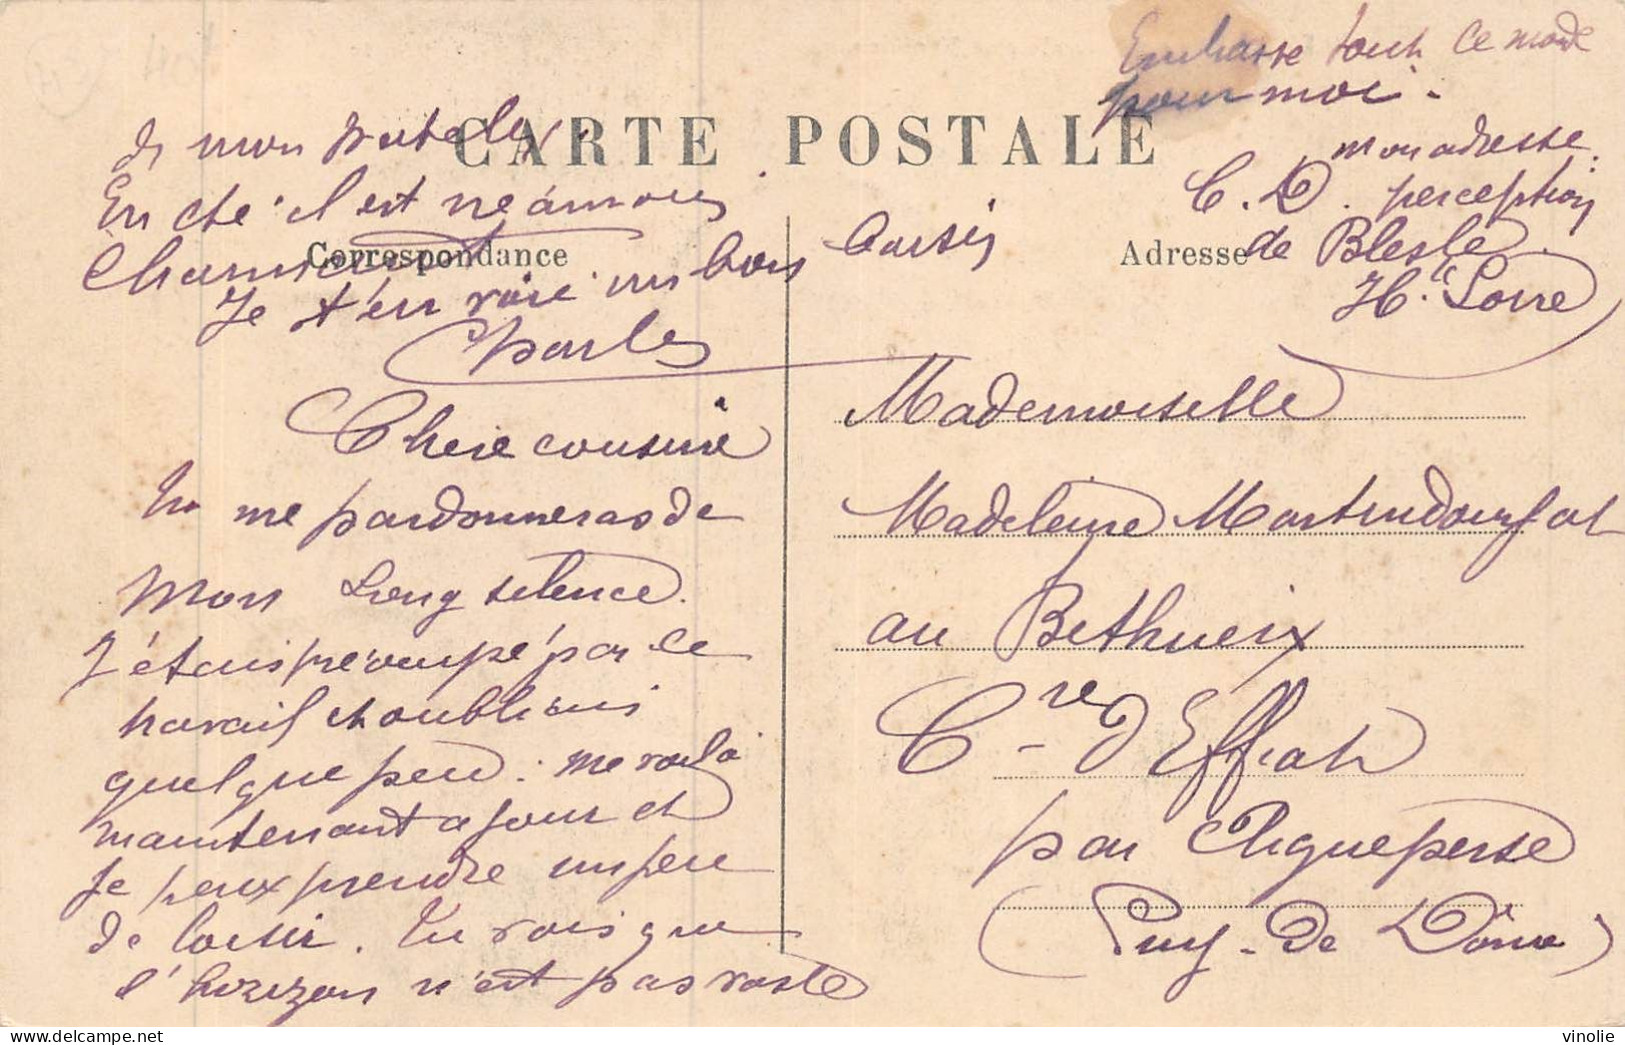 CARTE POSTALE
Correspondance
Adresse
Chère cousine
Tu me pardonneras de
mon long silence.
J'étais préoccupé par le
travail et oubliais
quelque peu : me voilà
maintenant à jour et
je peux prendre un peu
de loisir. Tu vois que
l'horizon n'est pas vaste
de mon
En été il est néanmoins
charmant
Je t'envoie un bon baiser
Charles
Embrasse tout le monde
pour moi -
mon adresse.
C. D. perception
de Blesle
Hte Loire
Mademoiselle
Madeleine
au Bethueix
Cne d'Effiat
par Aigueperse
(Puy-de Dôme)
vinolie